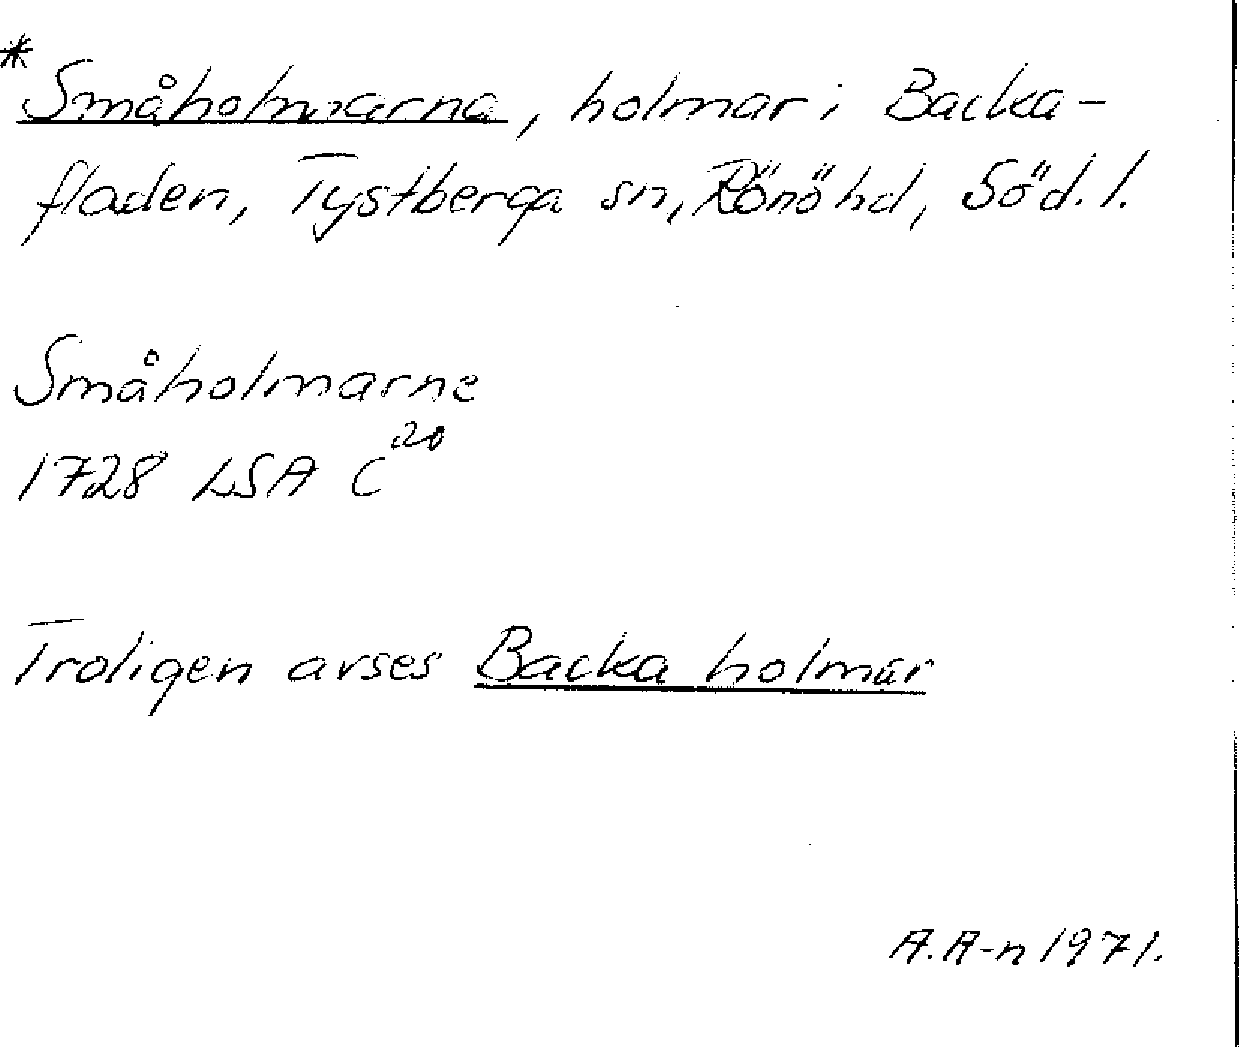 * Småholmarna, holmar i Backa-
fladen, Tystberga sn, Rönö hd, Söd. l.
Småholmarne
1728 LSA C²⁰
Troligen avses Backa holmar
A.A-n 1971.